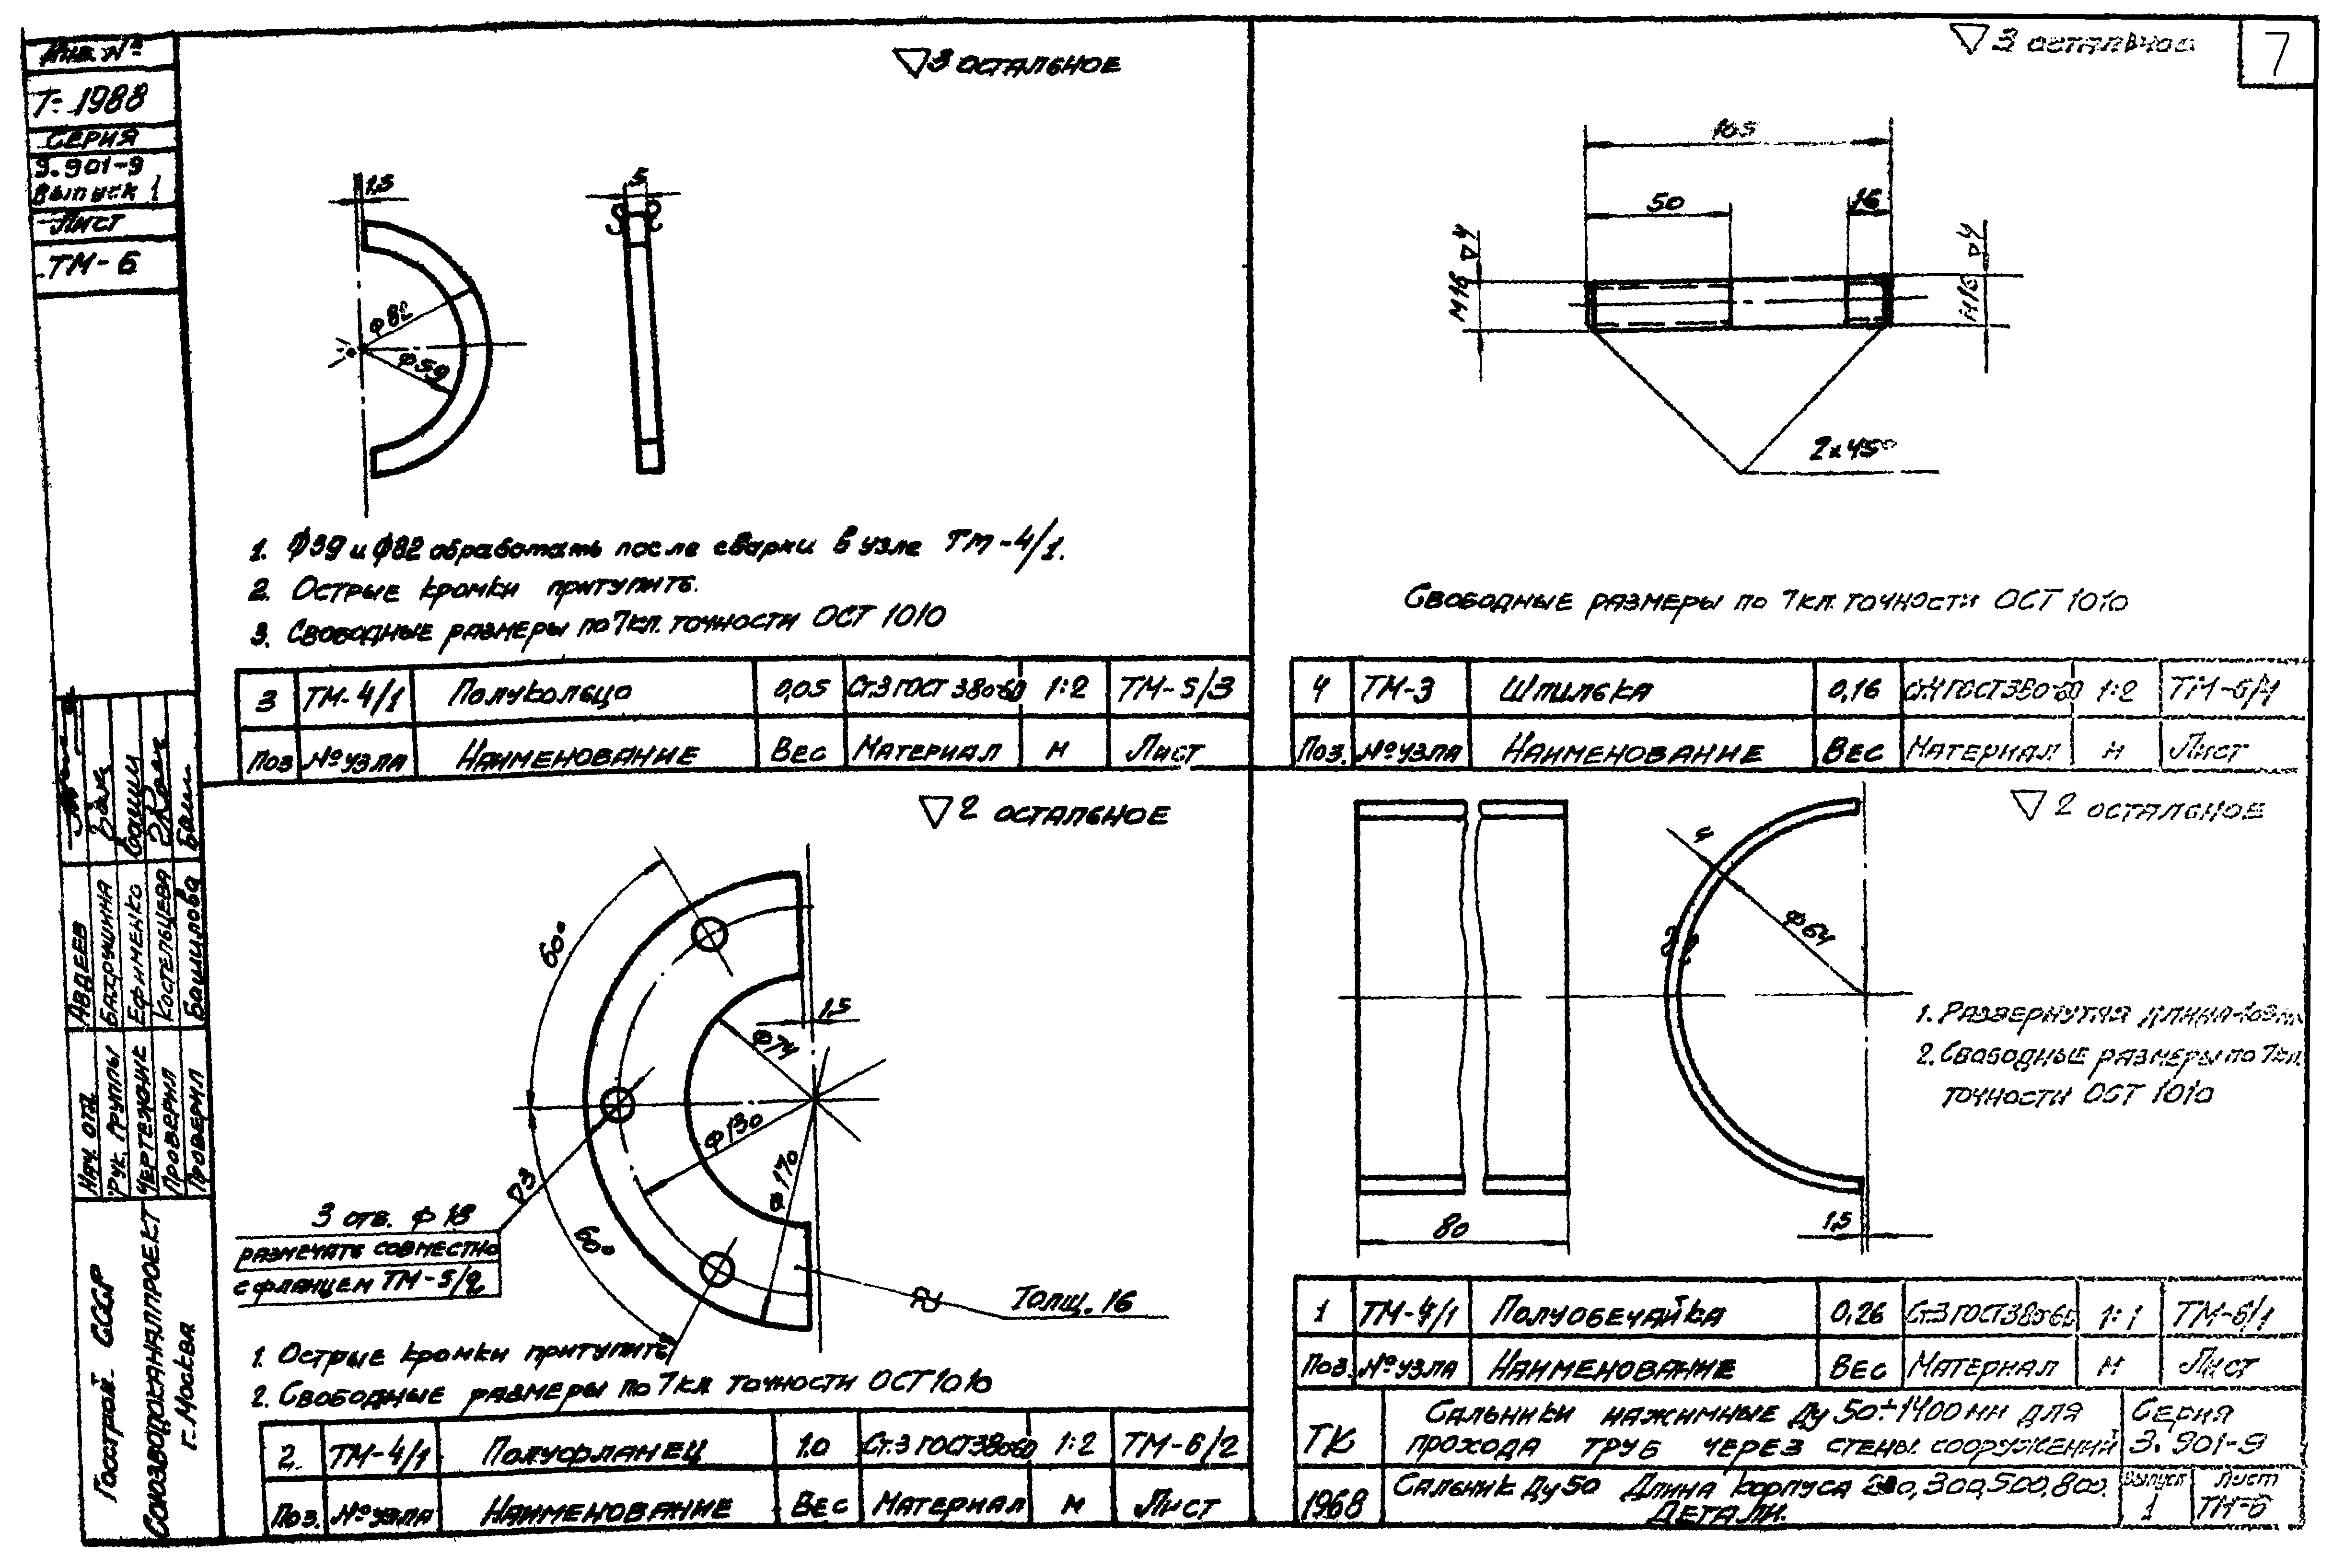 Инв. №
Т-1988
СЕРИЯ
3.901-9
Выпуск 1
Лист
ТМ-6
▽3 ОСТАЛЬНОЕ
1,5
5
Ф82
Ф59
1. Ф39 и Ф82 обработать после сварки в узле ТМ-4/1.
2. Острые кромки притупить.
3. Свободные размеры по 7 кл. точности ОСТ 1010
3 ТМ-4/1 Полукольцо 0,05 Ст.3 ГОСТ 380-60 1:2 ТМ-5/3
Поз № узла Наименование Вес Материал М Лист
▽3 остальное
7
165
50
16
М16 ▽4
М16 ▽4
2×45°
Свободные размеры по 7 кл. точности ОСТ 1010
4 ТМ-3 Шпилька 0,16 Ст.4 ГОСТ 380-60 1:2 ТМ-6/4
Поз. № узла Наименование Вес Материал М Лист
▽2 ОСТАЛЬНОЕ
60°
1,5
Ф74
Ф130
Ф170
▽3
60°
3 отв. Ф18
разметать совместно
с фланцем ТМ-5/2
Толщ. 16
1. Острые кромки притупить
2. Свободные размеры по 7 кл точности ОСТ 1010
2. ТМ-4/1 Полуфланец 1.0 Ст.3 ГОСТ 380-60 1:2 ТМ-6/2
Поз. № узла Наименование Вес Материал М Лист
▽2 ОСТАЛЬНОЕ
4
Ф64
80
1,5
1. Развернутая длина
2. Свободные размеры по 7 кл.
точности ОСТ 1010
1 ТМ-4/1 Полуобечайка 0,26 Ст.3 ГОСТ 380-60 1:1 ТМ-6/1
Поз. № узла Наименование Вес Материал М Лист
ТК Сальники нажимные Ду 50÷1400 мм для
прохода труб через стены сооружений
Серия
3.901-9
1968 Сальник Ду 50 Длина корпуса 200, 300, 500, 800.
Детали.
Выпуск
1
Лист
ТМ-6
Нач. отд. Авдеев
Рук. группы Бахрушина
Чертежник Ефименко
Проверил Костельцева
Проверил Башилова
Госстрой СССР
СОЮЗВОДОКАНАЛПРОЕКТ
г. Москва